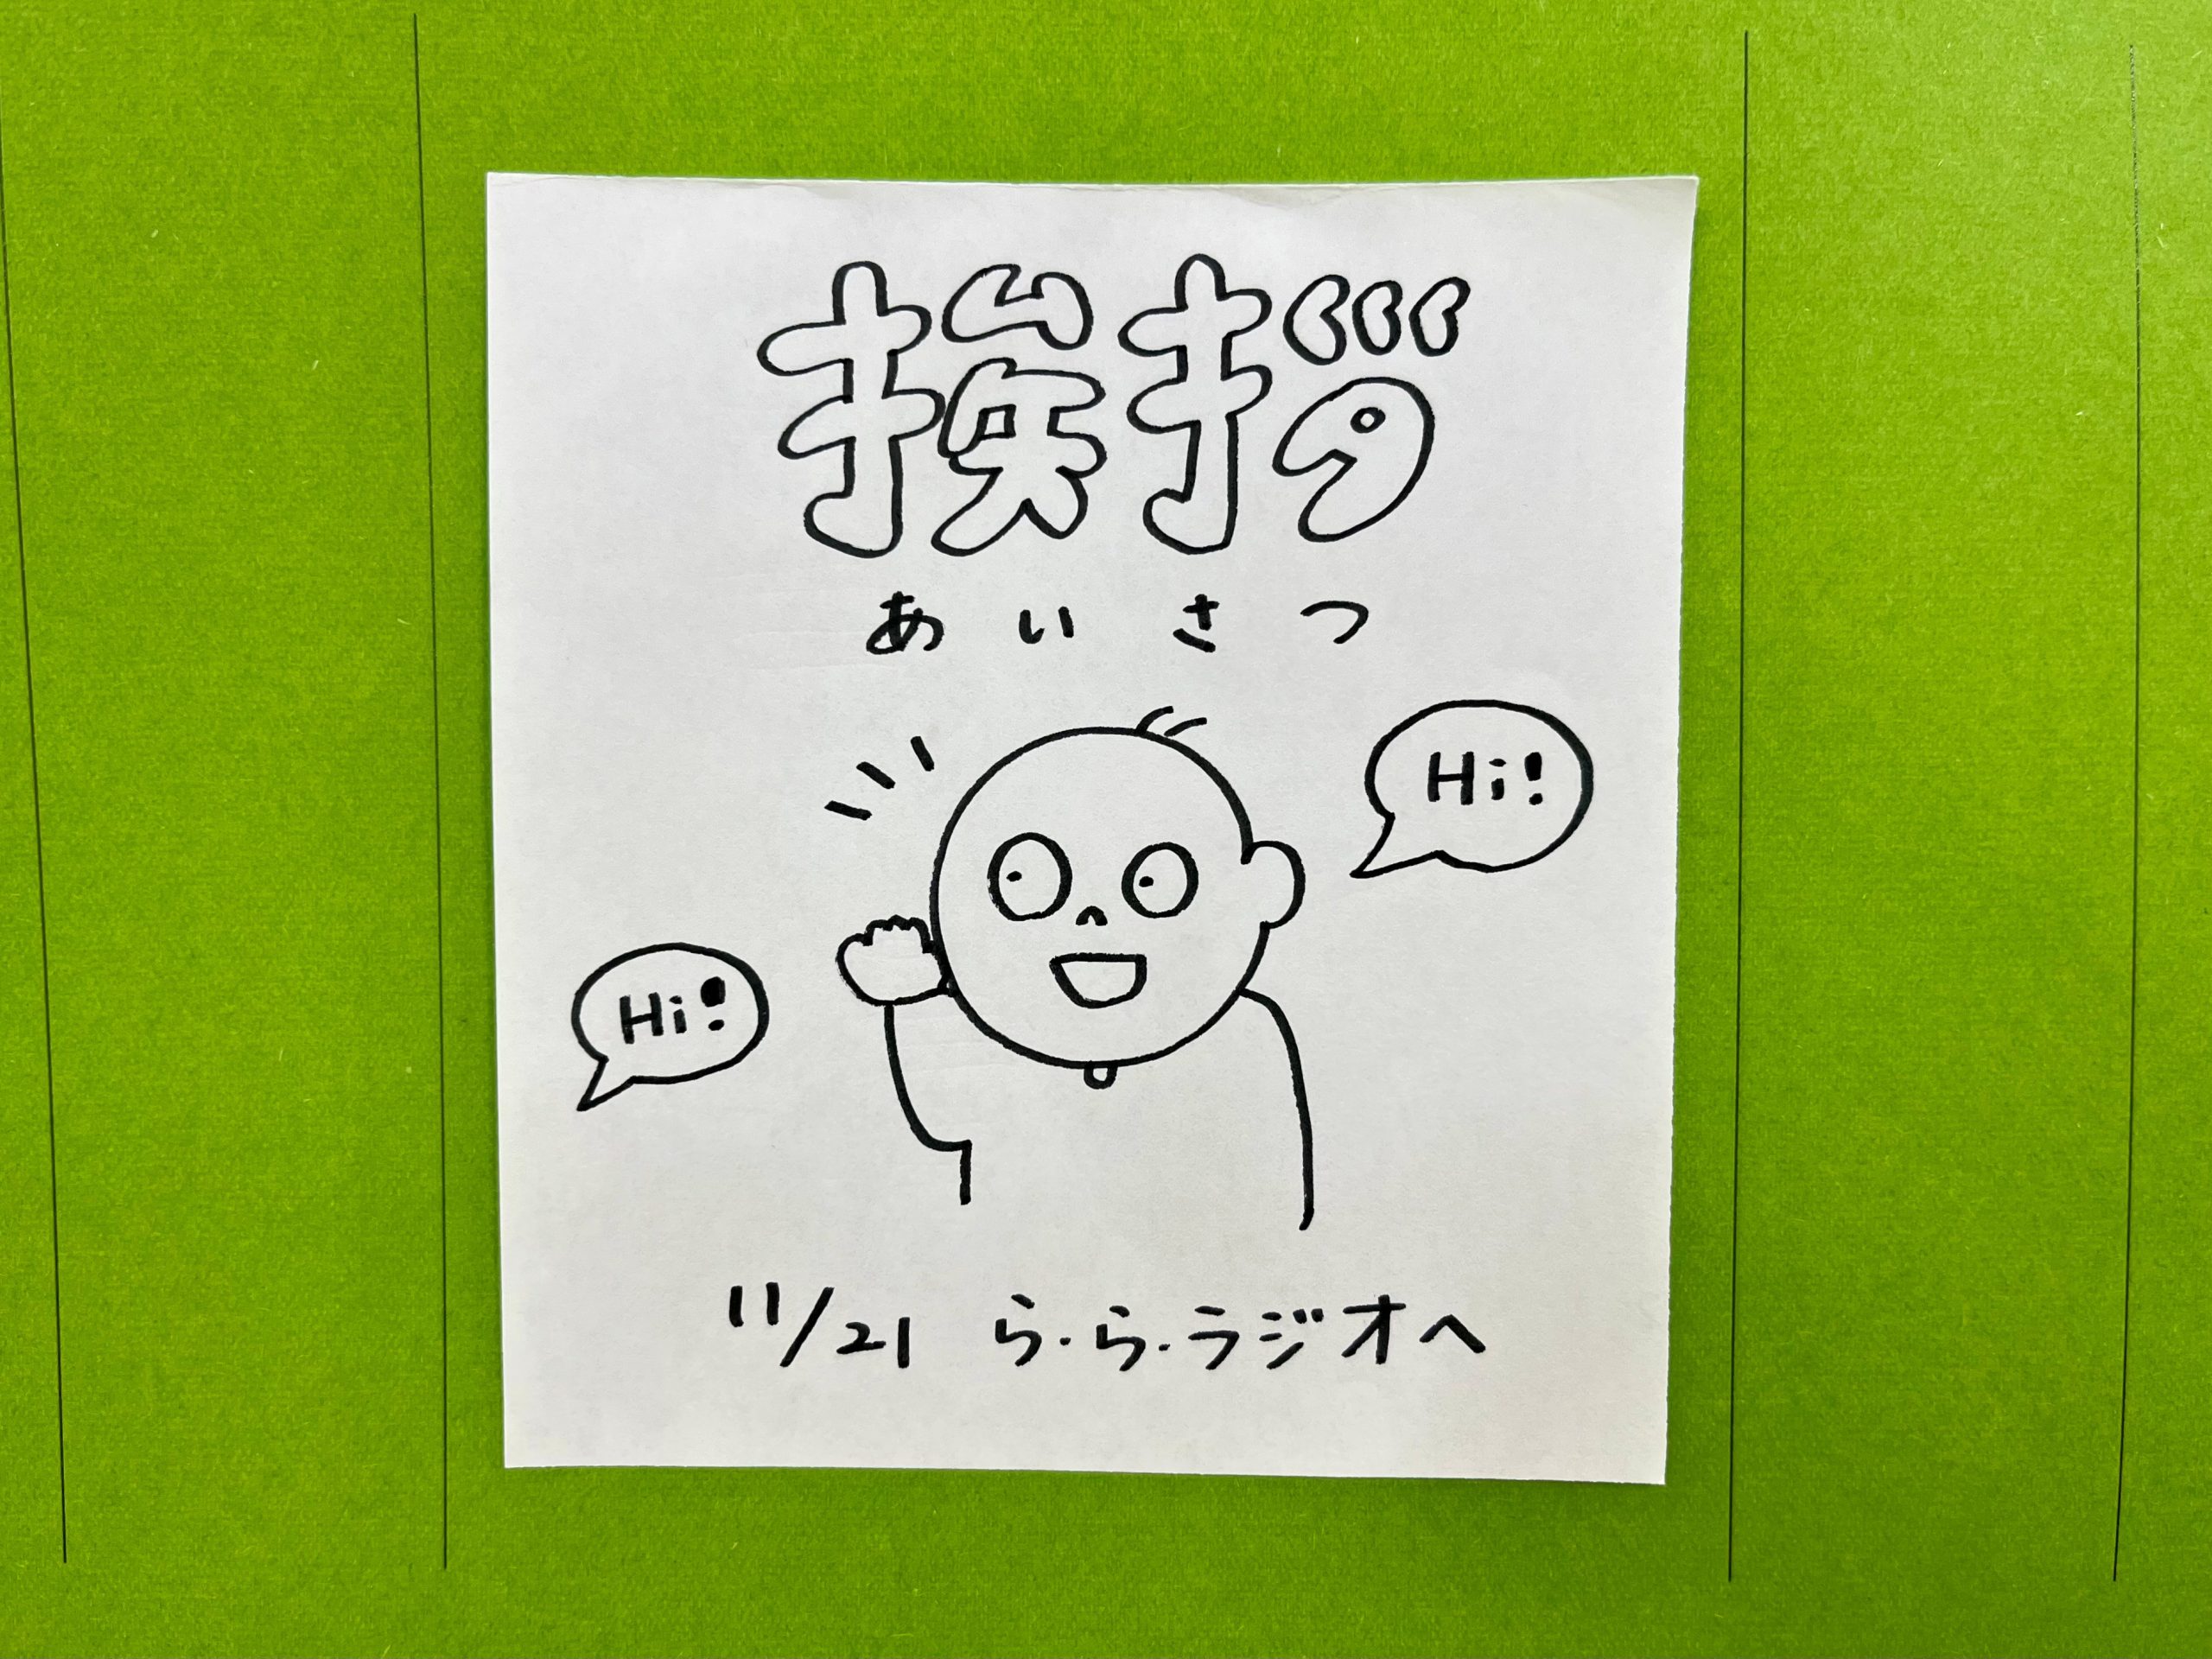 挨拶
あいさつ
Hi!
Hi!
11/21 ら・ら・ラジオへ